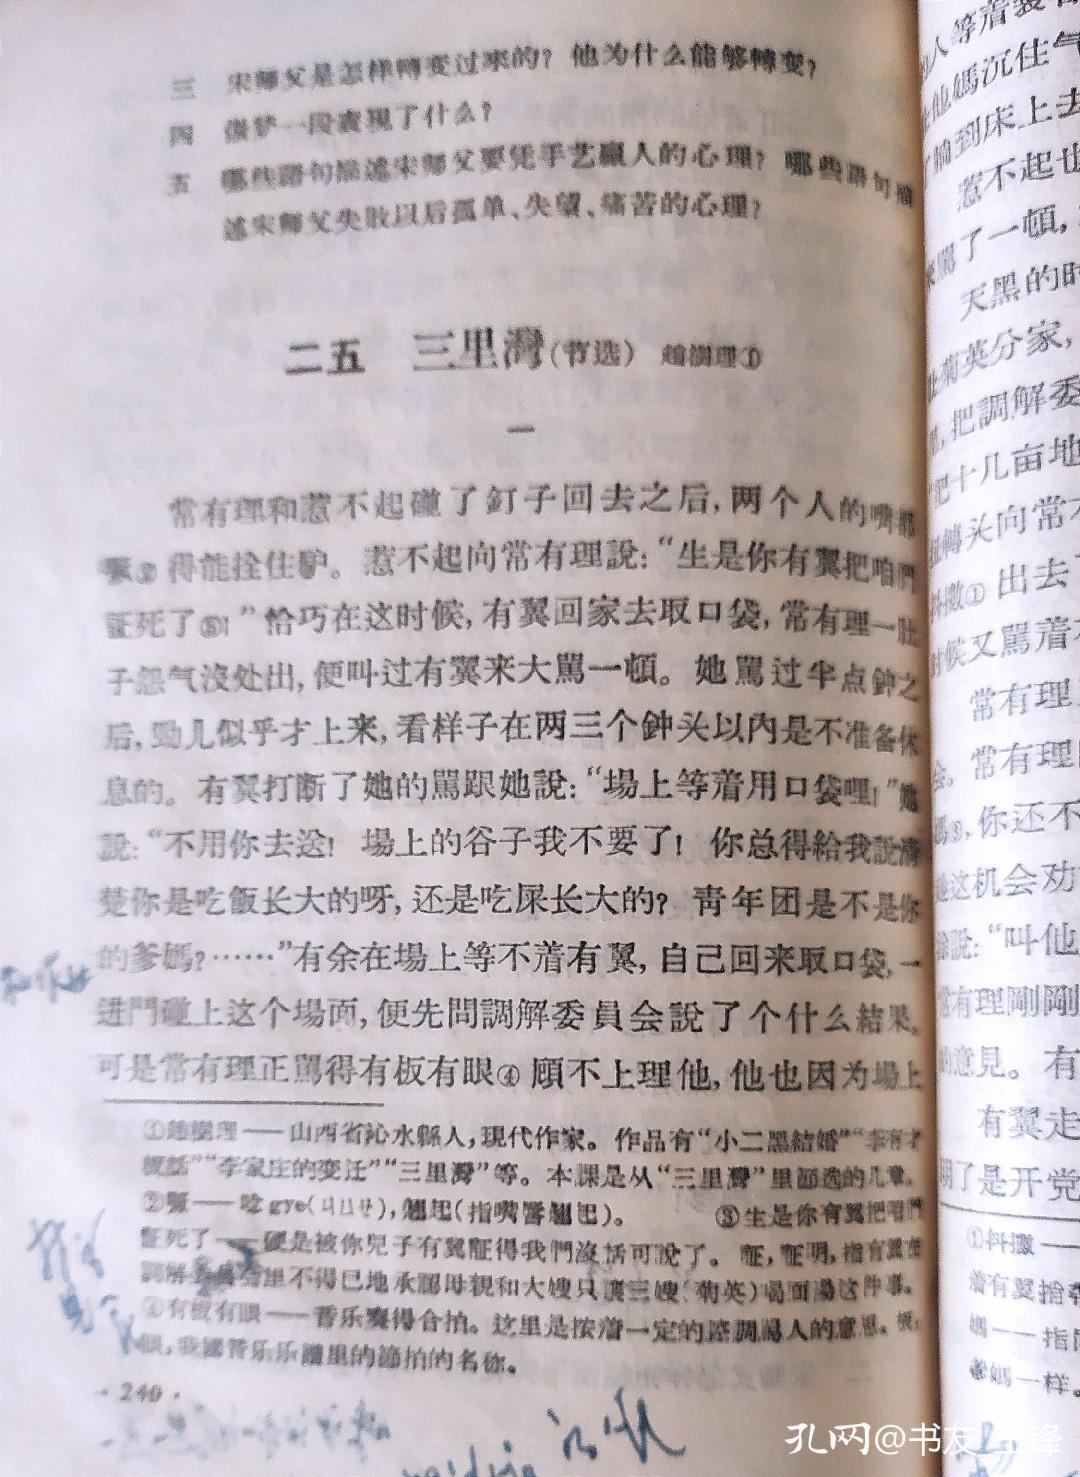 三 宋师父是怎样轉变过来的？他为什么能够轉变？
四 做梦一段表現了什么？
五 哪些語句描述宋师父要凭手艺贏人的心理？哪些語句描
述宋师父失敗以后孤单、失望、痛苦的心理？
二五 三里灣(节选) 趙樹理①
一
常有理和惹不起碰了釘子回去之后，两个人的嘴都
②得能拴住驴。惹不起向常有理說：“生是你有翼把咱們
証死了③！”恰巧在这时候，有翼回家去取口袋，常有理一肚
子怨气沒处出，便叫过有翼来大罵一頓。她罵过半点鈡之
后，勁儿似乎才上来，看样子在两三个鈡头以內是不准备休
息的。有翼打断了她的罵跟她說：“場上等着用口袋哩！”她
說：“不用你去送！場上的谷子我不要了！你总得給我說清
楚你是吃飯长大的呀，还是吃屎长大的？青年团是不是你
的爹媽？……”有余在場上等不着有翼，自己回来取口袋，一
进門碰上这个場面，便先問調解委員会說了个什么結果。
可是常有理正罵得有板有眼④顧不上理他，他也因为場上
①趙樹理——山西省沁水縣人，現代作家。作品有“小二黑結婚”“李有才
板話”“李家庄的变迁”“三里灣”等。本課是从“三里灣”里節選的几章。
②——唸gye(ㄐㄩㄝ)，翹起(指嘴唇翹起)。 ③生是你有翼把咱們
証死了——硬是被你兒子有翼証得我們沒話可說了。証，証明，指有翼在
調解委員会里不得已地承認母親和大嫂只讓三嫂(菊英)喝面湯这件事。
④有板有眼——音乐奏得合拍。这里是按着一定的腔調罵人的意思。板，
眼，我國音乐乐譜里的節拍的名称。
·240·
人等着装
他媽沉住气
到床上去
惹不起也
了一頓，
天黑的时
菊英分家，
，把調解委
把十几亩地
轉头向常有
抖撒①出去
时候又罵着
常有理
常有理
，你还不
这机会劝
說：“叫他
常有理剛剛
的意見。有
有翼走
明了是开党
①抖撒——
着有翼抬
媽——指
媽一样。
孔网@书友_王锋